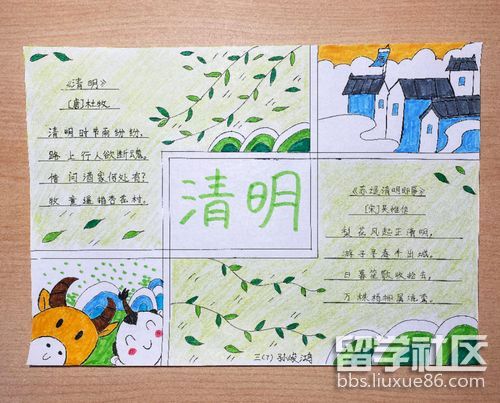 《清明》
[唐]杜牧
清明时节雨纷纷,
路上行人欲断魂。
借问酒家何处有?
牧童遥指杏花村。
清明
《苏堤清明即事》
[宋]吴惟信
梨花风起正清明,
游子寻春半出城。
日暮笙歌收拾去,
万株杨柳属流莺。
三(7)
留学社区
bbs.liuxue86.com